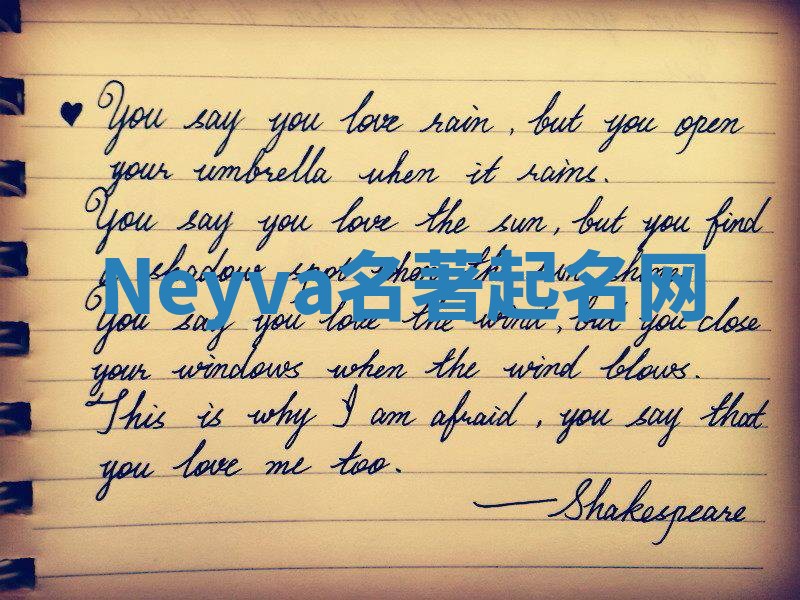 You say you love rain, but you open
your umbrella when it rains.
You say you love the sun, but you find
a shadow spot when the sun shines.
Neyva名著起名网
You say you love the wind, but you close
your windows when the wind blows.
This is why I am afraid, you say that
you love me too.
—Shakespeare